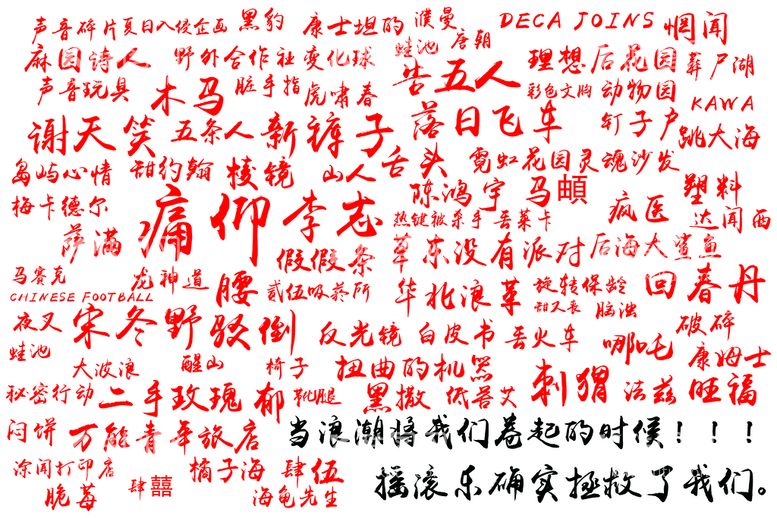 声音碎片 夏日入侵企画 黑豹 康士坦的 濮曼 DECA JOINS 惘闻
蛙池 唐朝
麻园诗人 野外合作社 变化球 告五人 理想后花园 彝尸湖
声音玩具 木马 脏手指 虎啸春 彩色文胸 动物园 KAWA
谢天笑 五条人 新裤子 落日飞车 钉子户 跳大海
岛屿心情 甜约翰 棱镜 山人 舌头 霓虹花园 灵魂沙发
梅卡德尔 痛仰 李志 陈鸿宇 马頔 疯医 塑料
热键被杀手 丢莱卡 达闻西
萨满 假假條 草东没有派对 后海大鲨鱼
马赛克 龙神道 腰 贰伍吸菸所 华北浪革 旋转保龄 回春丹
CHINESE FOOTBALL 甜又长 脑浊
夜叉 宋冬野 驳倒 反光镜 白皮书 丢火车 哪吒 破碎
蛙池 大波浪 醒山 椅子 扭曲的机器 康姆士
秘密行动 二手玫瑰 郁 靴腿 黑撒 低苦艾 刺猬 法兹 旺福
闷饼 万能青年旅店 当浪潮将我们卷起的时侯！！！
涂闻打印店 肆囍 橘子海 肆伍
脆莓 海龟先生 摇滚乐确实拯救了我们。